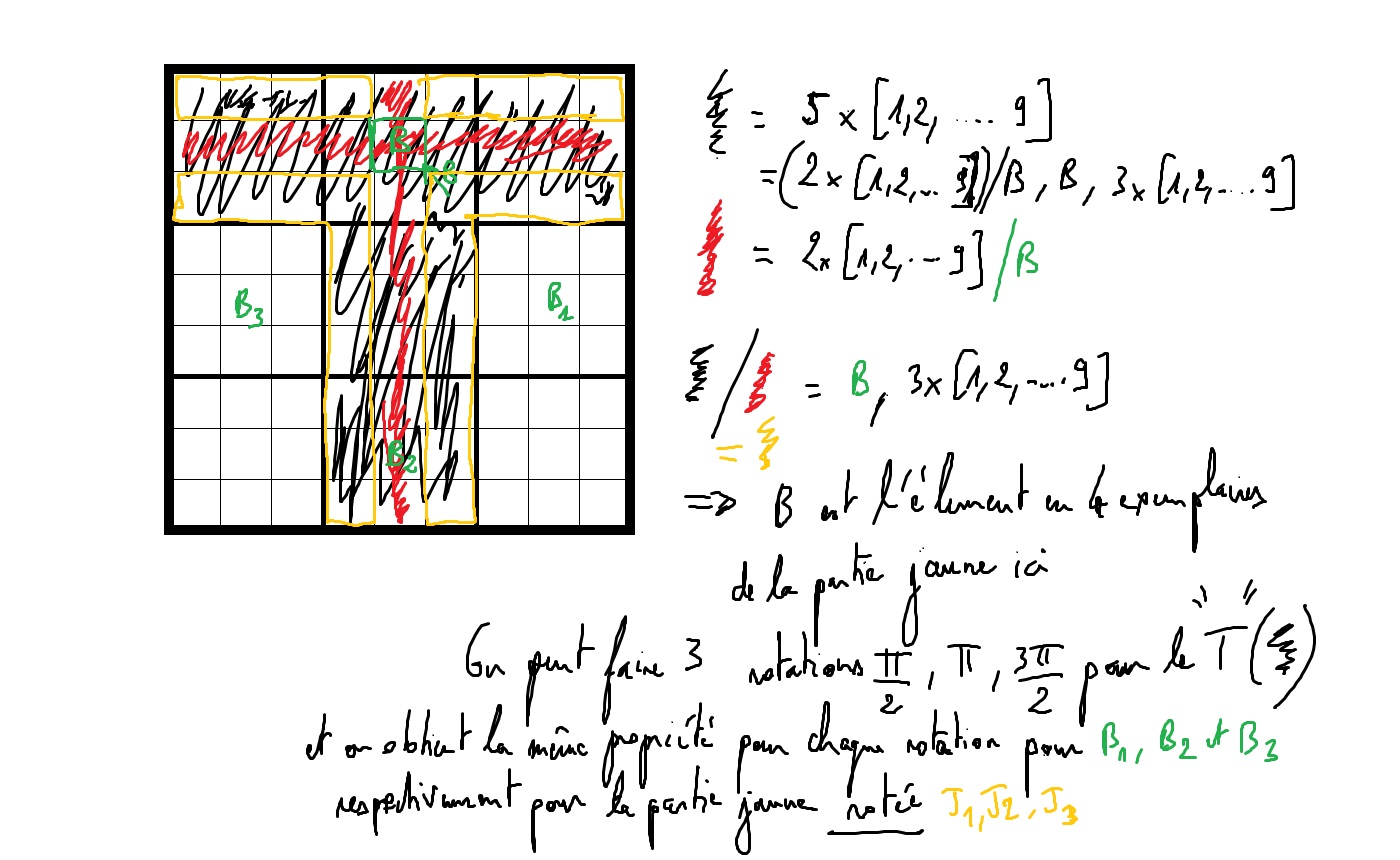 = 5 x [1,2, .... 9]
B
B
= (2 x [1,2,... 9])/B , B , 3 x [1,2,....9]
= 2x [1,2,.. 9] / B
B3
B1
/ = B, 3x [1,2,....9]
=
B2
=> B est l'élément en 4 exemplaires
de la partie jaune ici
On peut faire 3 rotations π/2 , π , 3π/2 pour le "T" ( )
et on obtient la même propriété pour chaque rotation pour B1, B2 et B3
respectivement pour la partie jaune notée J1, J2, J3